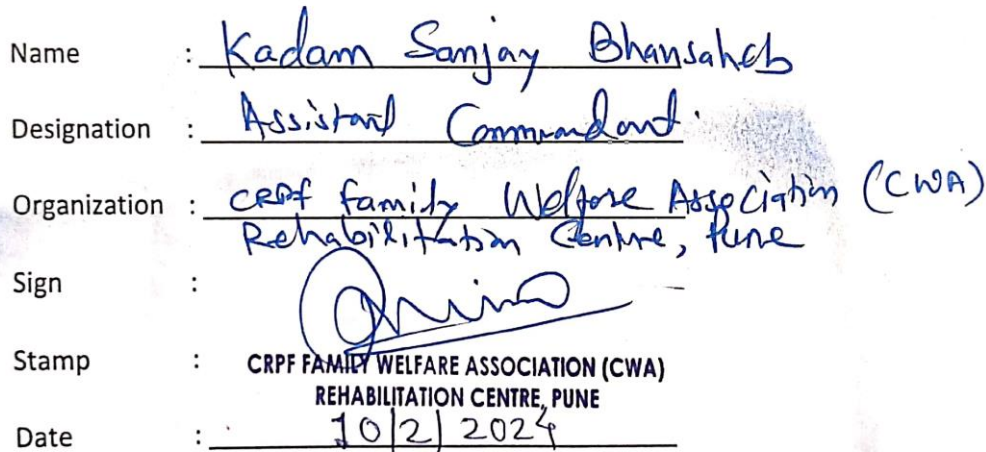 Name : Kadam Sanjay Bhausaheb
Designation : Assistant Commandant
Organization : CRPF family Welfare Association (CWA)
Rehabilitation Centre, Pune
Sign :
Stamp : CRPF FAMILY WELFARE ASSOCIATION (CWA)
REHABILITATION CENTRE, PUNE
Date : 10/2/2024